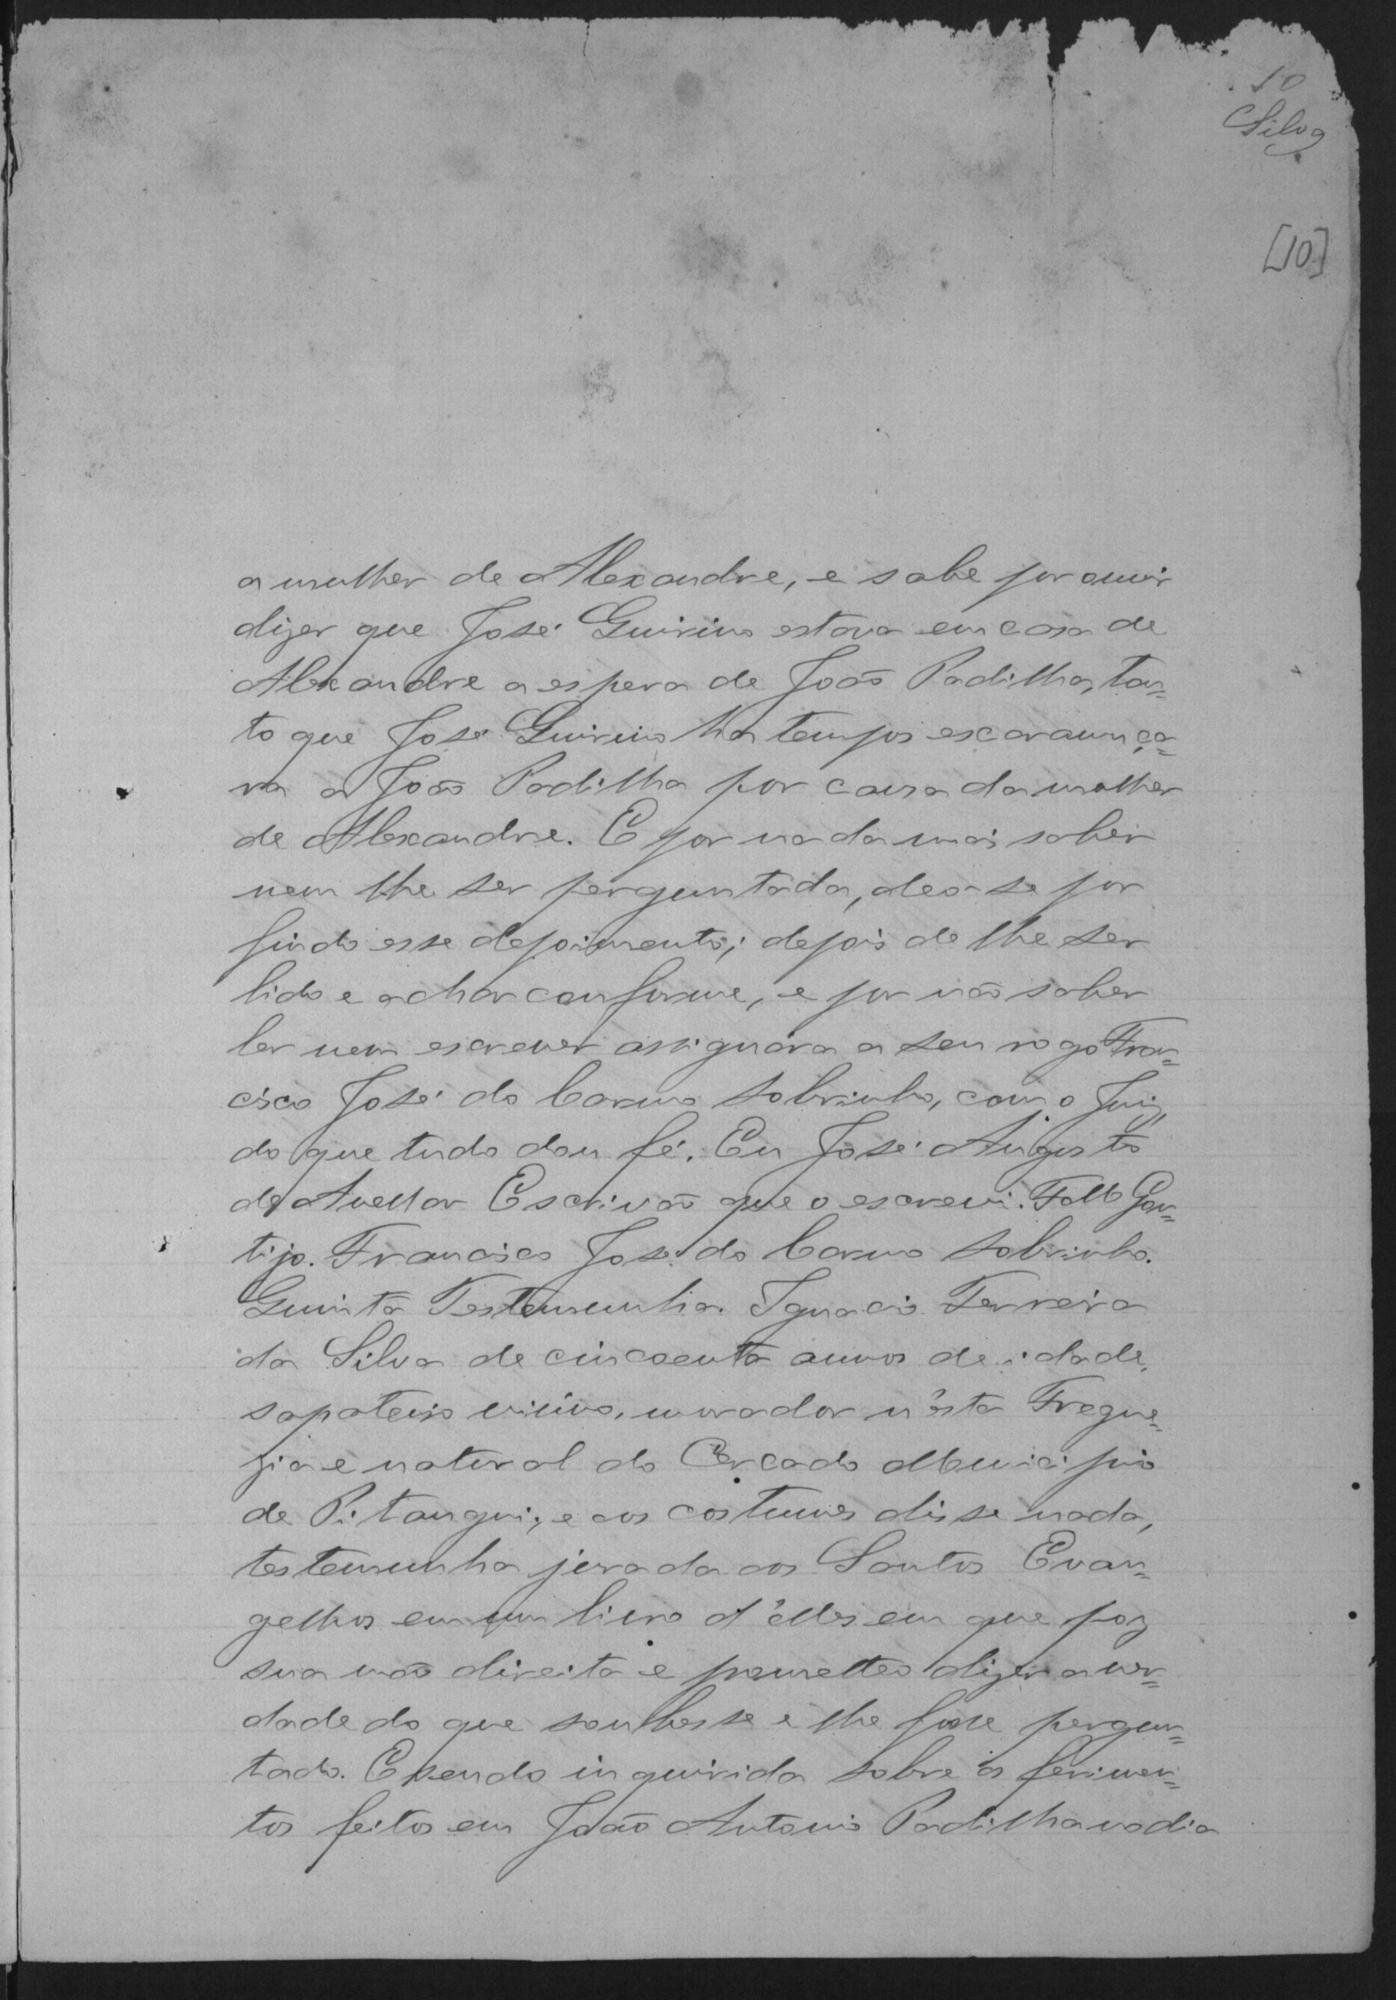 10
Silva
[10]
a mulher de Alexandre, e sabe por ouvir
dizer que José Quirino estava em casa de
Alexandre a espera de João Padilha, tan=
to que José Quirino ha tempos escaramuça=
va a João Padilha por causa da mulher
de Alexandre. E por nada mais saber
nem lhe ser perguntada, deo-se por
findo esse depoimento; depois de lhe ser
lido e achar conforme, e por não saber
ler nem escrever assignara a seu rogo Fran=
cisco José do Carmo Sobrinho, com o Juiz,
do que tudo dou fé. Eu José Augusto
de Avellar Escrivão que o escrevi.
tijo. Francisco José do Carmo Sobrinho.
Quinta Testemunha. Ignacio Ferreira
da Silva de cincoenta annos de idade,
sapateiro viúvo, morador n'esta Fregue=
zia e natural do Cercado Municipio
de Pitangui, e aos costumes disse nada,
testemunha jurada aos Santos Evan=
gelhos em um livro d'elles em que poz
sua mão direita e prometteo dizer a ver=
dade do que soubesse e lhe fosse pergun=
tado. E sendo inquirida sobre os ferimen=
tos feitos em João Antonio Padilha no dia